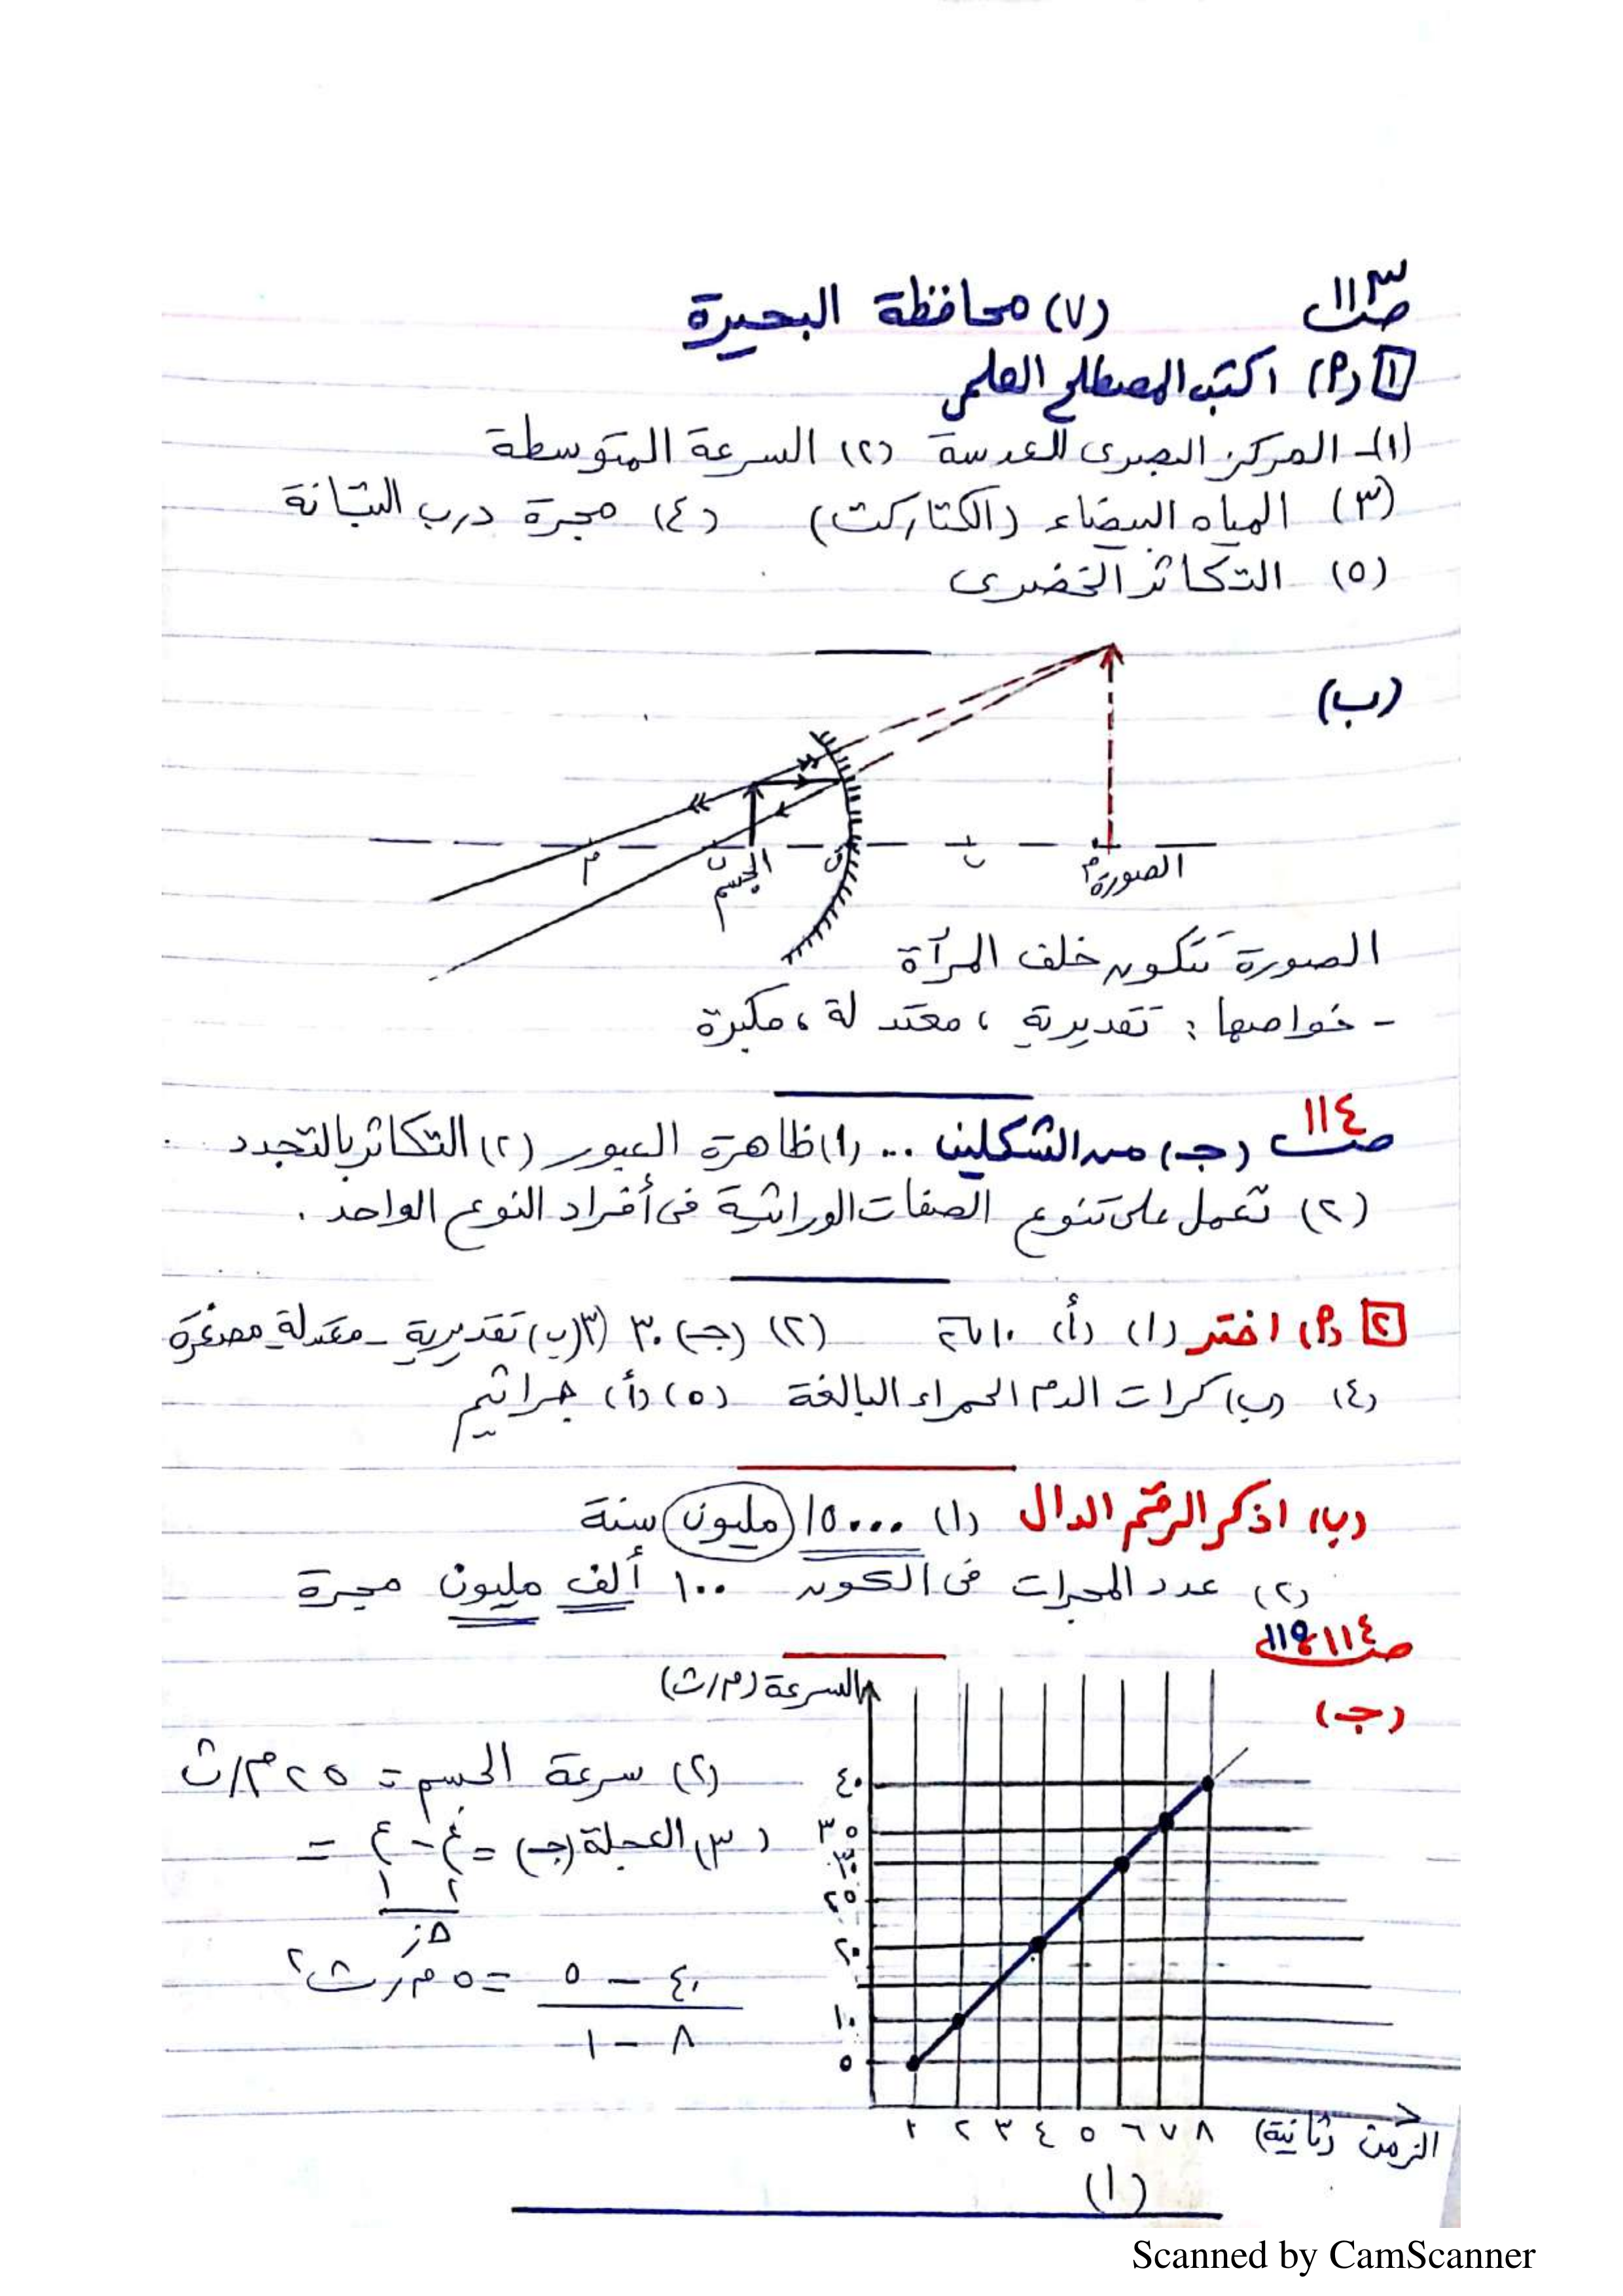 ص١١٣ (٧) محافظة البحيرة
١ (٢) اكتب المصطلح العلمى
(١)- المركز البصرى للعدسة (٢) السرعة المتوسطة
(٣) المياه البيضاء (الكتاركت) (٤) مجرة درب التبانة
(٥) التكاثر الخضرى
(ب)
م ن الجسم ق ن م الصورة
الصورة تتكون خلف المرآة
- خواصها : تقديرية ، معتدلة ، مكبرة
ص١١٤ (جـ) من الشكلين ... (١) ظاهرة العبور (٢) التكاثر بالتجدد
(٢) تعمل على تنوع الصفات الوراثية فى أفراد النوع الواحد .
٢ (٢) اختر (١) (أ) (٢) (جـ) ٣٠ (٣) (ب) تقديرية - معتدلة مصغرة
(٤) (ب) كرات الدم الحمراء البالغة (٥) (أ) جراثيم
(ب) اذكر الرقم الدال (١) ١٥٠٠٠ مليون سنة
(٢) عدد المجرات فى الكون ١٠٠ ألف مليون مجرة
ص١١٤، ١١٥
(جـ) السرعة (م/ث)
(٢) سرعة الجسم = ٢٥ م/ث
(٣) العجلة (جـ) = ع٢ - ع١ =
Δز
٤٠ - ٥ = ٥ م/ث٢
٨ - ١
٤٠
٣٥
٣٠
٢٥
٢٠
١٠
٥
١ ٢ ٣ ٤ ٥ ٦ ٧ ٨ الزمن (ثانية)
(١)
Scanned by CamScanner